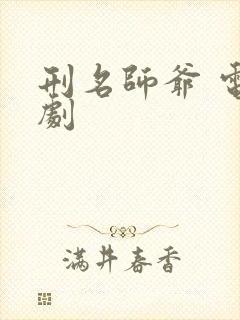 刑名師爺 電
劇
满井春香